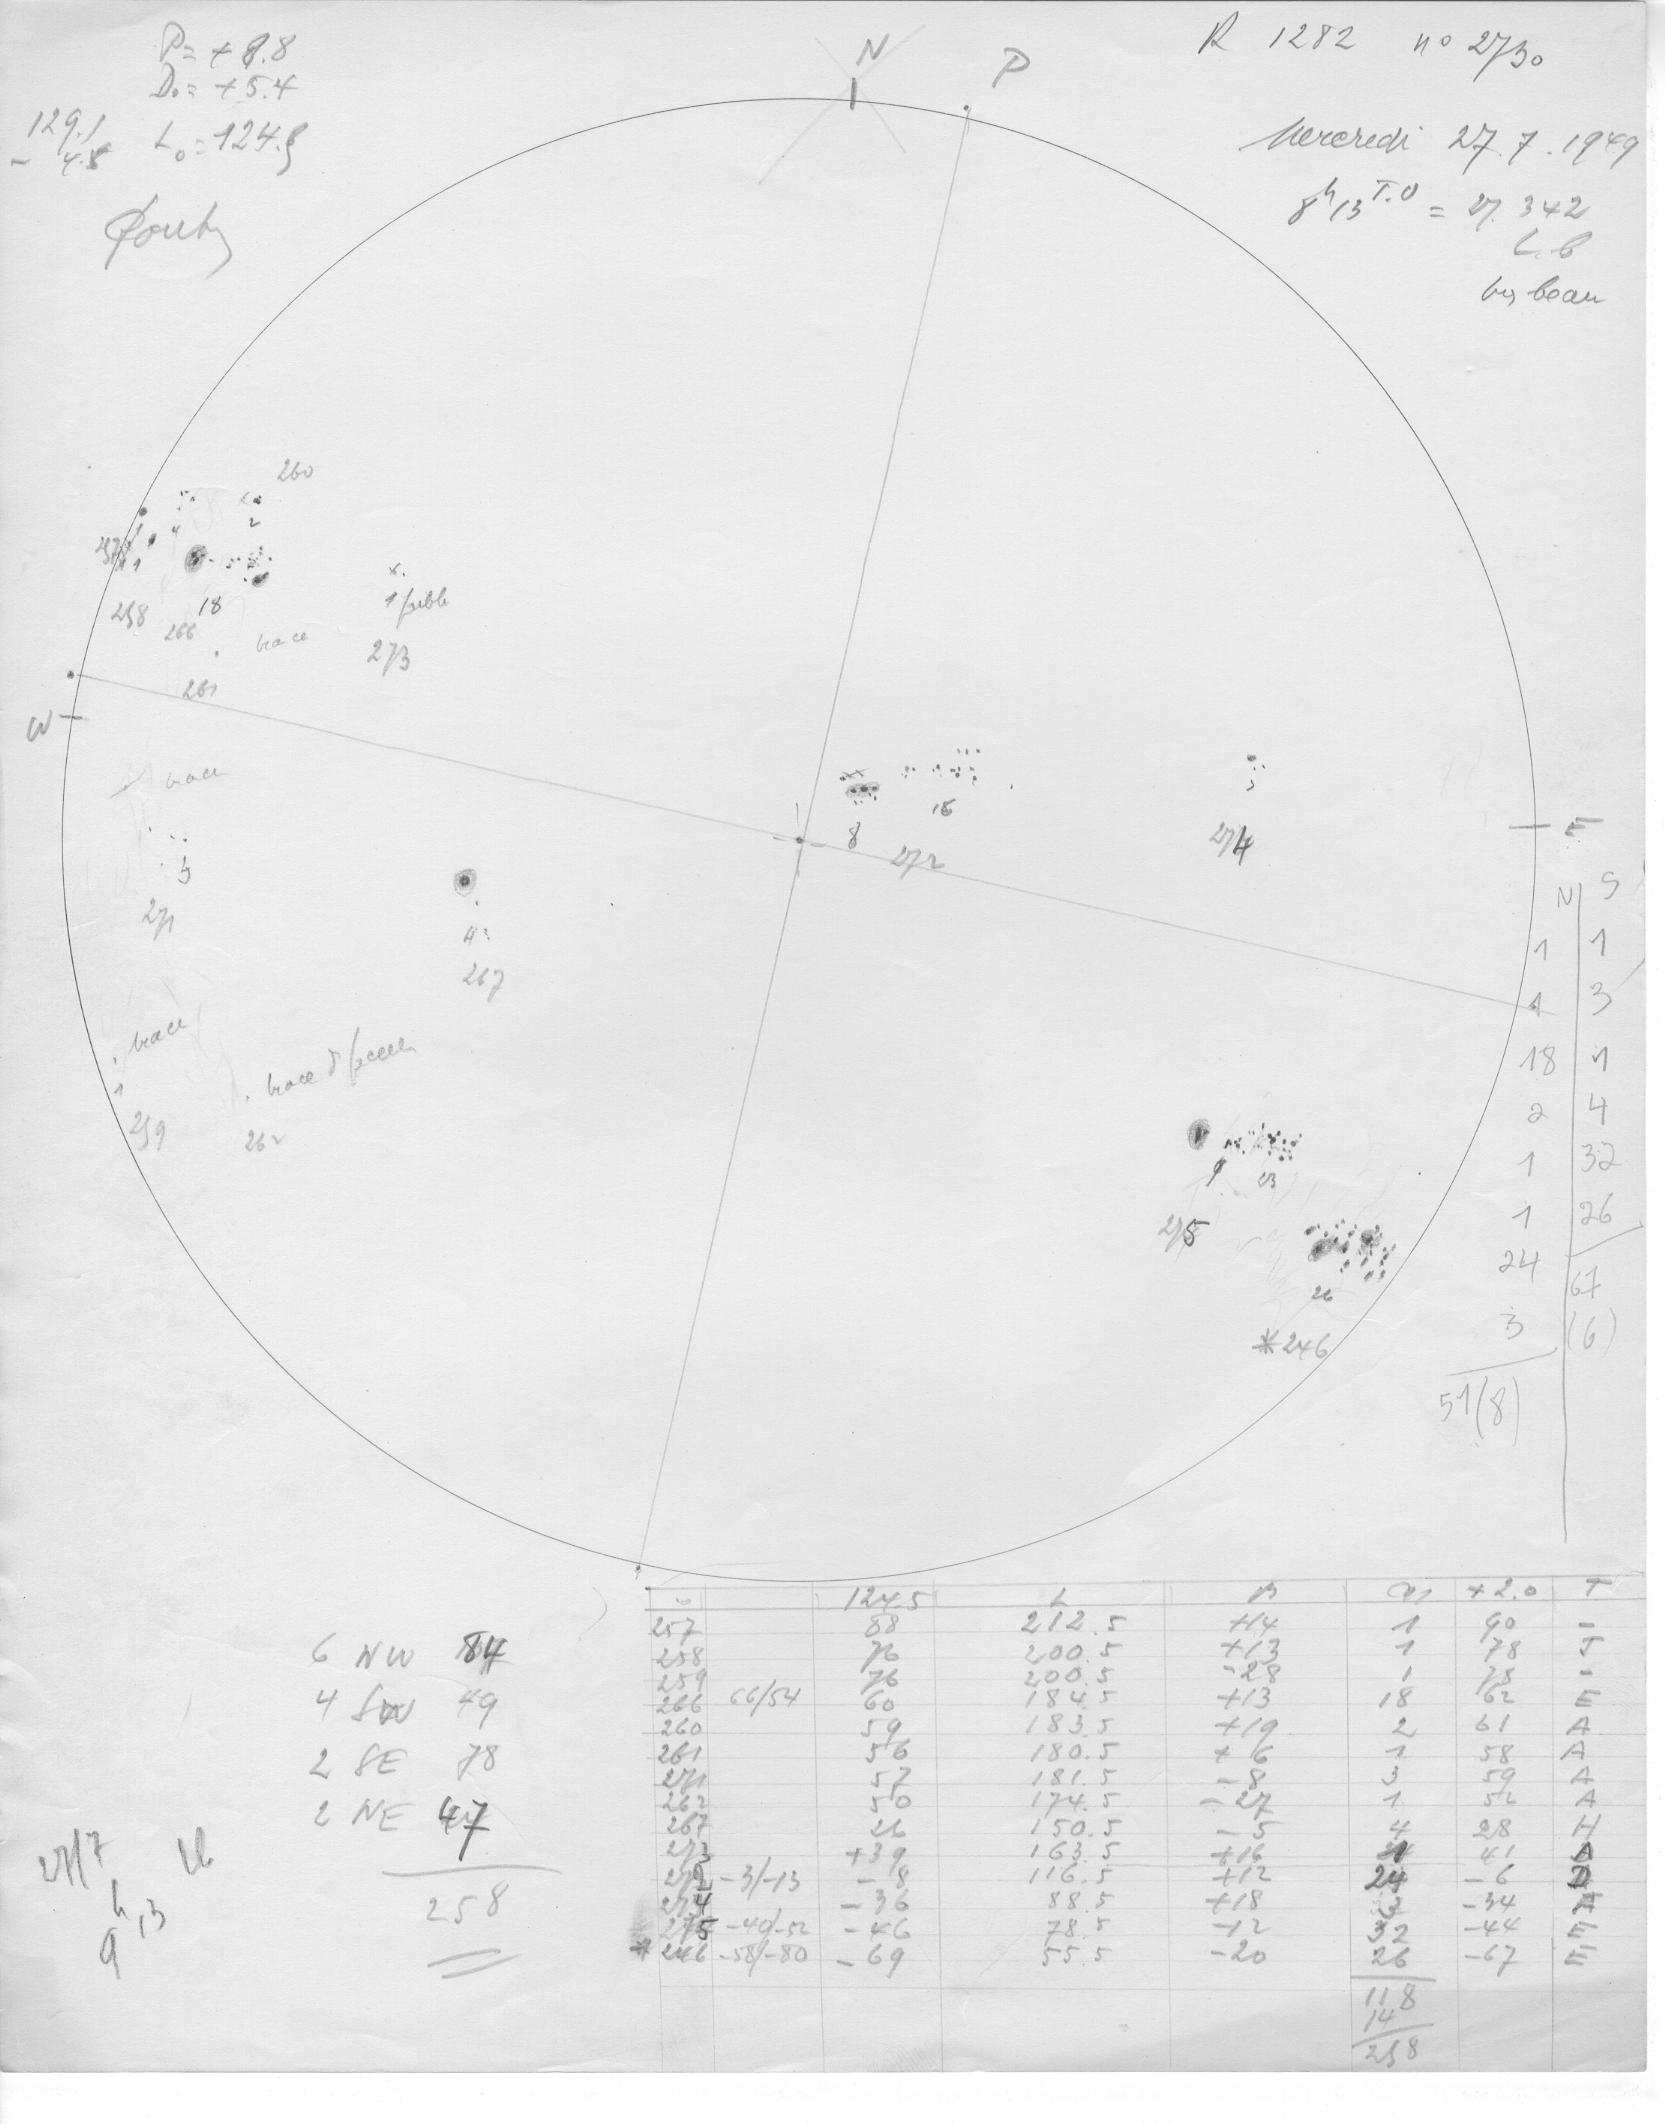 P = + 8.8
D₀ = + 5.4
129.1
- 4.8
L₀ = 124.3
N
P
R 1282 n° 2730
Mercredi 27.7.1949
8h13 T.U = 27.342
L.B
très beau
260
4
2
257
1
1
258
18
266
trace
261
1 faible
273
W
trace
3
271
4
267
trace
1
259
262
8
16
272
3
274
E
9
23
275
26
*246
N S
1 1
1 3
18 1
2 4
1 32
1 26
24 67
3 (6)
51(8)
124.5 L B +2.0 T
257 88 212.5 +14 1 90 -
258 76 200.5 +13 1 78 J
259 76 200.5 -28 1 78 -
266 66/54 60 184.5 +13 18 62 E
260 59 183.5 +19 2 61 A
261 56 180.5 +6 1 58 A
271 57 181.5 -8 3 59 A
262 50 174.5 -27 1 52 A
267 26 150.5 -5 4 28 H
273 +39 163.5 +16 1 41 A
272 -3/-13 -8 116.5 +12 24 -6 D
274 -36 88.5 +18 3 -34
275 -40/-52 -46 78.5 -12 32 -44 E
*246 -58/-80 -69 55.5 -20 26 -67 E
118
14
258
6 NW 84
4 SW 49
2 SE 78
2 NE 47
258
27/7 LB
9h13